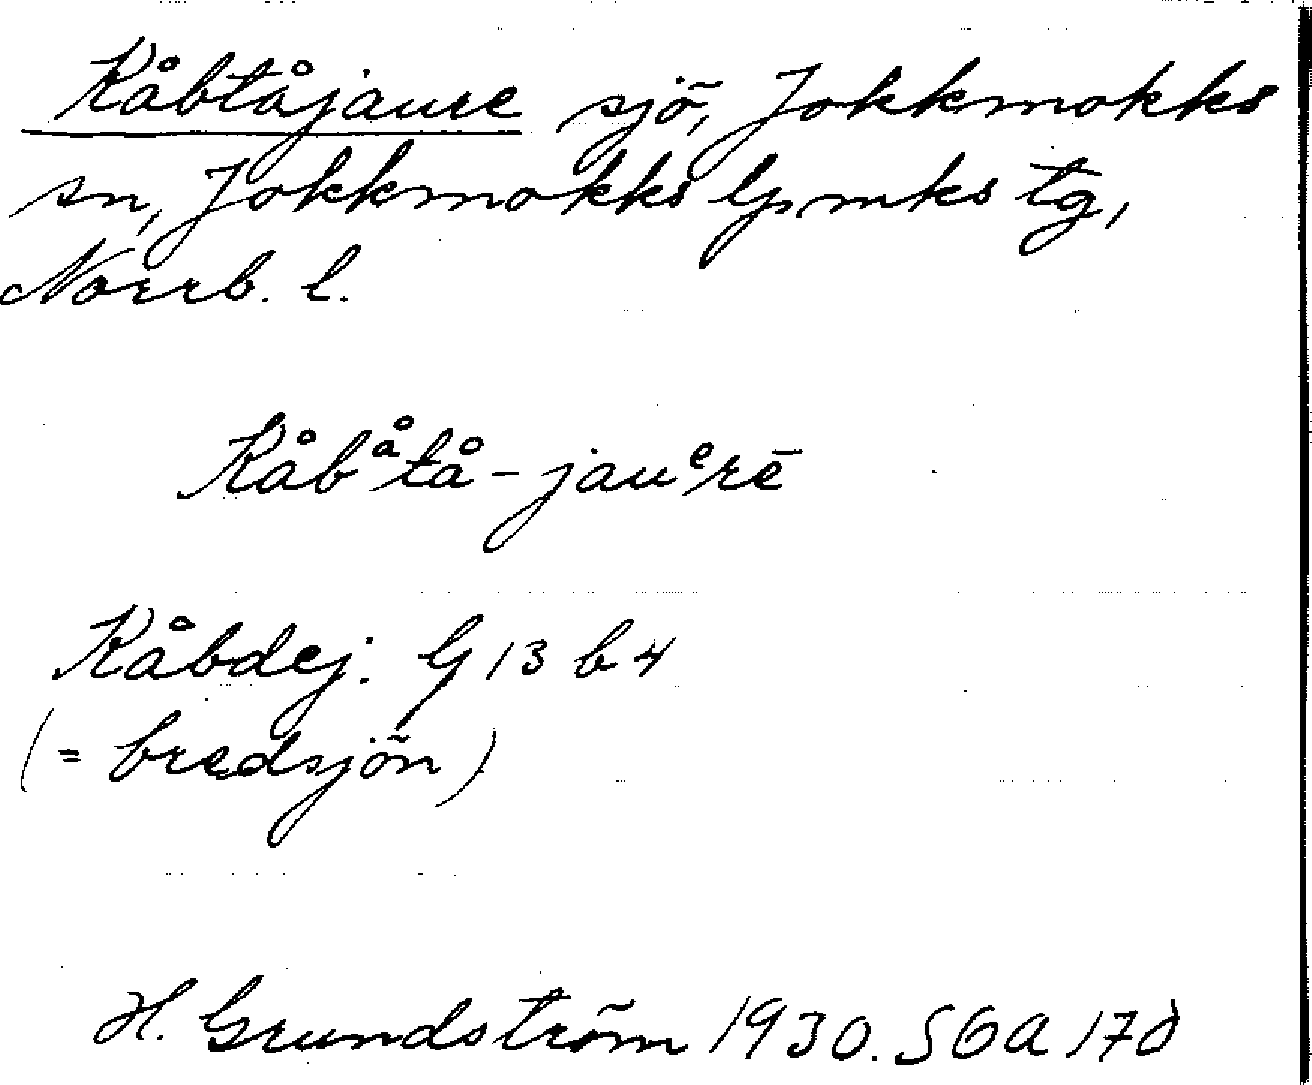 Kåbtåjaure sjö, Jokkmokks
sn, Jokkmokks lpmks tg,
Norrb. l.
Kåbåtå-jauerē
Kåbdej. G 13 b 4
(= bredsjön)
H. Grundström 1930. SOA 178